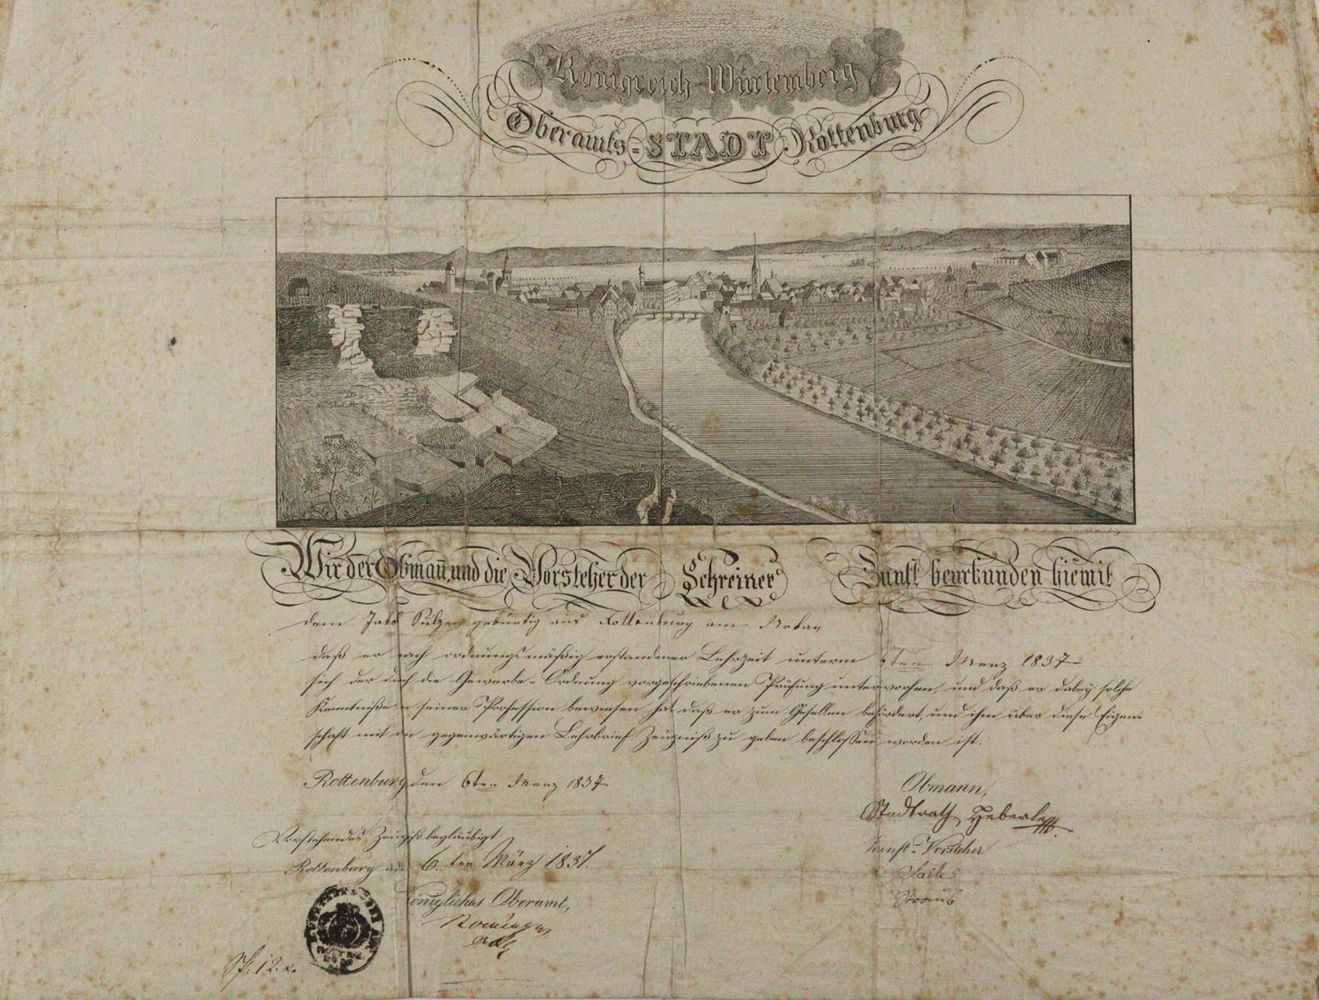 Königreich-Würtemberg
Oberamts=STADT Rottenburg
Wir der Obmañ und die Vorsteher der Schreiner Zunft beurkunden hiemit
dem Jakob Sulzer gebürtig aus Rottenburg am Nekar
daß er nach ordnungsmäßig erstandener Lehrzeit unterm 6ten Merz 1837
sich der durch die Gewerbe-Ordnung vorgeschriebenen Prüfung unterworfen, und daß er dabey solche
Kenntniße in seiner Profession bewiesen hat, daß er zum Gesellen befördert, und ihm über diese Eigen
schaft mit dem gegenwärtigen Lehrbrief Zeugniß zu geben beschloßen worden ist.
Rottenburg den 6ten Merz 1837
Obmann,
Stadtrath
Zunft-Vorsteher
Vorstehendes Zeugniß beglaubigt
Rottenburg den 6.ten März 1837.
Königliches Oberamt,